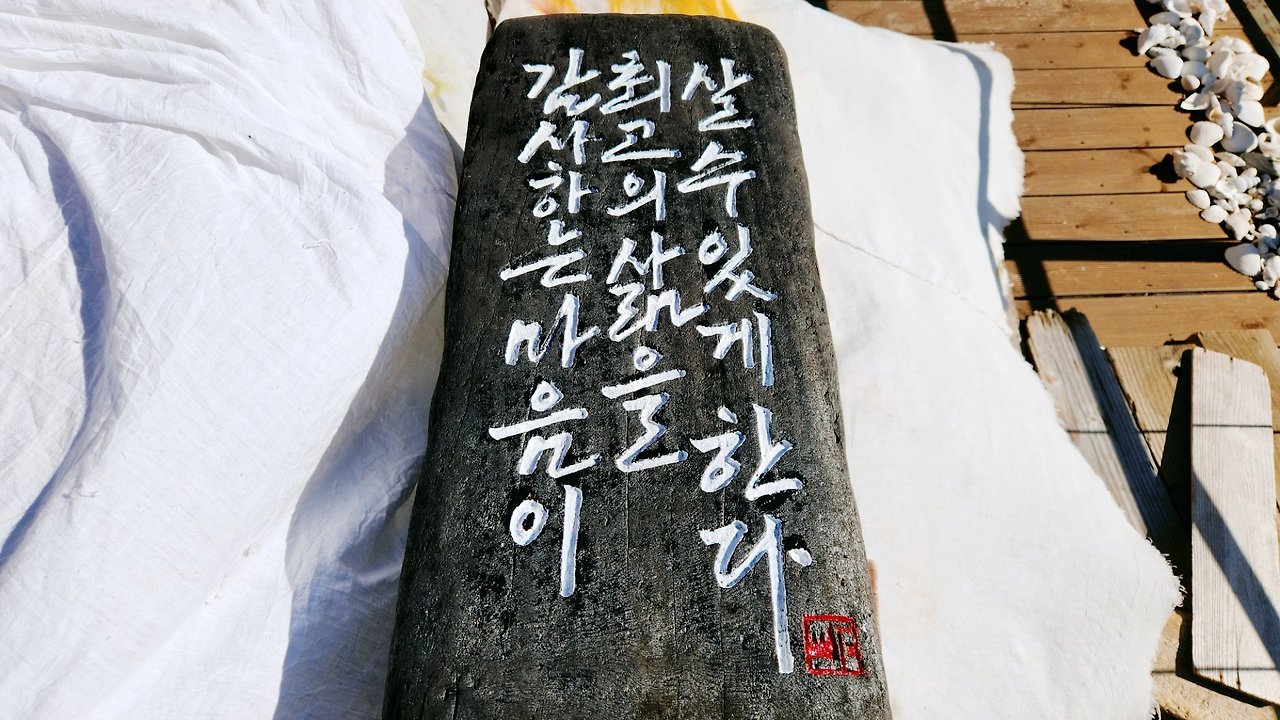 감사하는 마음이
최고의 삶을
살 수 있게 한다.